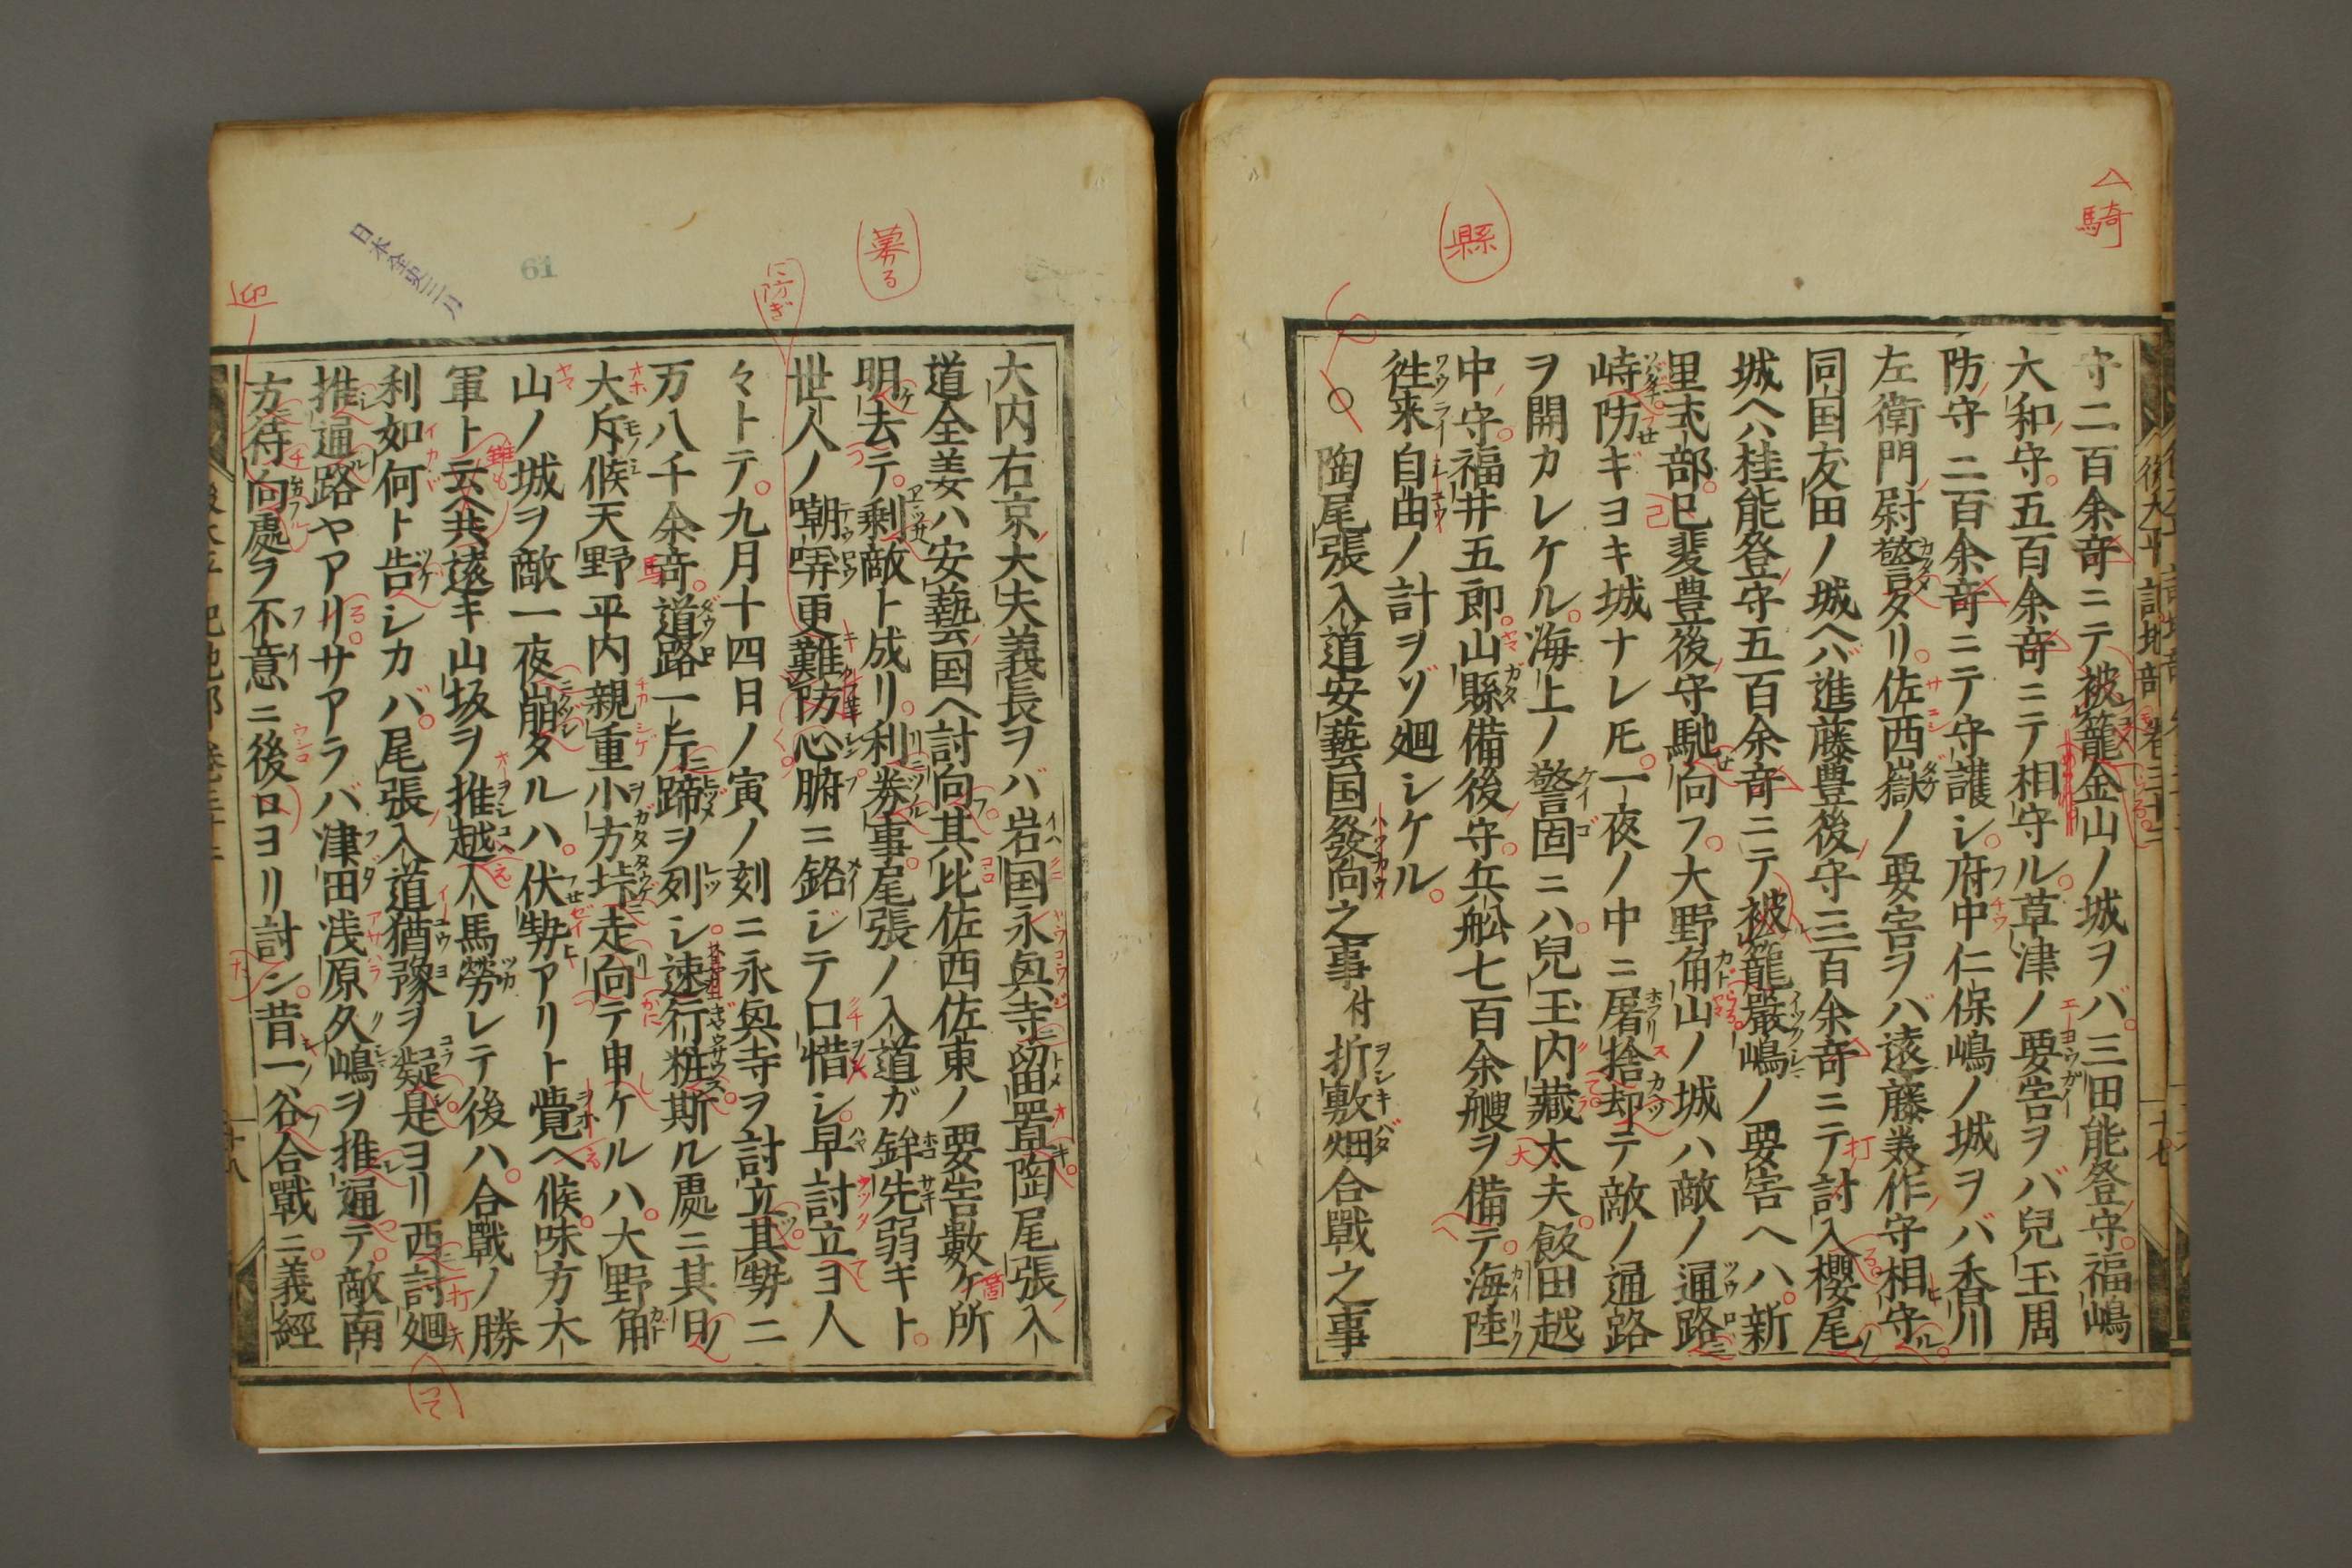 守二百余竒ニテ被籠金山ノ城ヲバ三田能登守福嶋
大和守五百余竒ニテ相守ル草津ノ要害ヲバ兒玉周
防守二百余竒ニテ守護シ府中仁保嶋ノ城ヲバ香川
左衛門尉警タリ佐西嶽ノ要害ヲバ遠藤美作守相守
同国友田ノ城ヘバ進藤豊後守三百余竒ニテ討入櫻尾
城ヘハ桂能登守五百余竒ニテ被籠嚴嶋ノ要害ヘハ新
里式部已斐豊後守馳向フ大野角山ノ城ハ敵ノ通路
峙防ギヨキ城ナレ𪜈一夜ノ中ニ屠捨却テ敵ノ通路
ヲ開カレケル海上ノ警固ニハ兒玉内藏太夫飯田越
中守福井五郎山縣備後守兵舩七百余艘ヲ備テ海陸
徃来自由ノ計ヲゾ廻シケル
○陶尾張入道安藝国發向之事付折敷畑合戰之事
大内右京大夫義長ヲバ岩国永興寺留置陶尾張入
道全姜ハ安藝国ヘ討向其比佐西佐東ノ要害數ケ所
明去テ剰敵ト成リ利劵事尾張ノ入道ガ鉾先弱ギト
世人ノ嘲哢更難防心腑ニ銘ジテ口惜シ早討立ヨ人
々トテ九月十四日ノ寅ノ刻ニ永興寺ヲ討立其勢二
万八千余竒道路一片蹄ヲ列シ速行粧斯ル處ニ其日
大斥候天野平内親重小方垰走向テ申ケルハ大野角
山ノ城ヲ敵一夜崩タルハ伏勢アリト覺ヘ候味方大
軍ト云共遠キ山坂ヲ推越人馬勞レテ後ハ合戰ノ勝
利如何ト告シカバ尾張入道猶豫ヲ凝是ヨリ西討廻
推通路ヤアリサアラバ津田浅原久嶋ヲ推通テ敵南
方待向處ヲ不意ニ後ロヨリ討シ昔一谷合戰ニ義經
騎
縣
募る
に防ぎ
迎
61